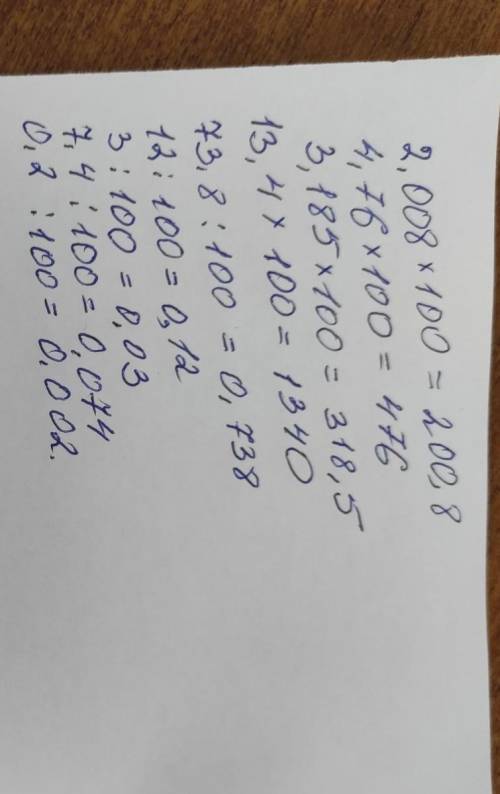 2,008 × 100 = 200,8
4,76 × 100 = 476
3,185 × 100 = 318,5
13,4 × 100 = 1340
73,8 : 100 = 0,738
12 : 100 = 0,12
3 : 100 = 0,03
7,4 : 100 = 0,074
0,2 : 100 = 0,002.